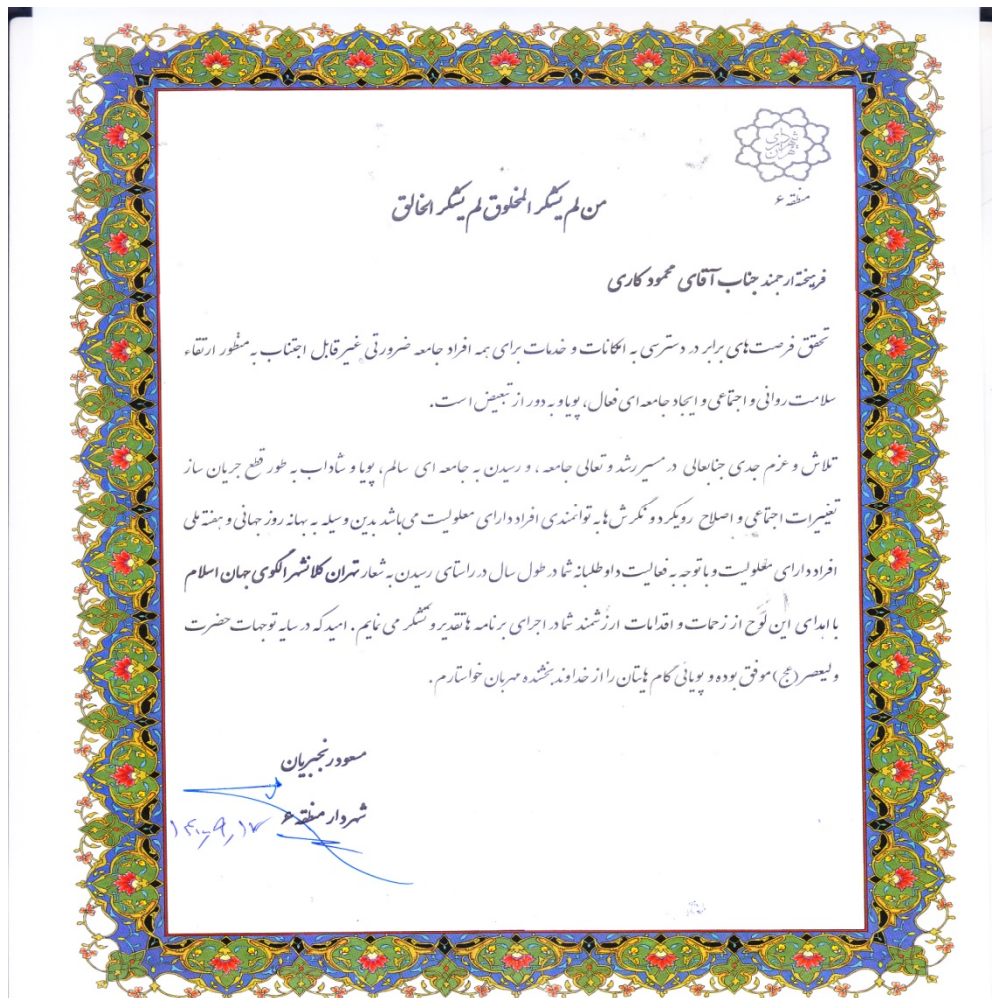 منطقه ۶
من لم یشکر المخلوق لم یشکر الخالق
فریخته ارجمند جناب آقای محمود کاری
تحقق فرصت های برابر در دسترسی به امکانات و خدمات برای همه افراد جامعه ضرورتی غیر قابل اجتناب به منظور ارتقاء
سلامت روانی و اجتماعی و ایجاد جامعه ای فعال، پویا و به دور از تبعیض است.
تلاش و عزم جدی جنابعالی در مسیر رشد و تعالی جامعه، و رسیدن به جامعه ای سالم، پویا و شاداب به طور قطع جریان ساز
تغییرات اجتماعی و اصلاح رویکرد و نگرش ها به توانمندی افراد دارای معلولیت می باشد بدین وسیله به بهانه روز جهانی و هفته ملی
افراد دارای معلولیت و با توجه به فعالیت داوطلبانه شما در طول سال در راستای رسیدن به شعار تهران کلانشهر الگوی جهان اسلام
با اهدای این لوح از زحمات و اقدامات ارزشمند شما در اجرای برنامه ها تقدیر و تشکر می نمایم. امید که در سایه توجهات حضرت
ولیعصر (عج) موفق بوده و پویائی گام هایتان را از خداوند بخشنده مهربان خواستارم.
مسعود رنجبریان
شهردار منطقه ۶